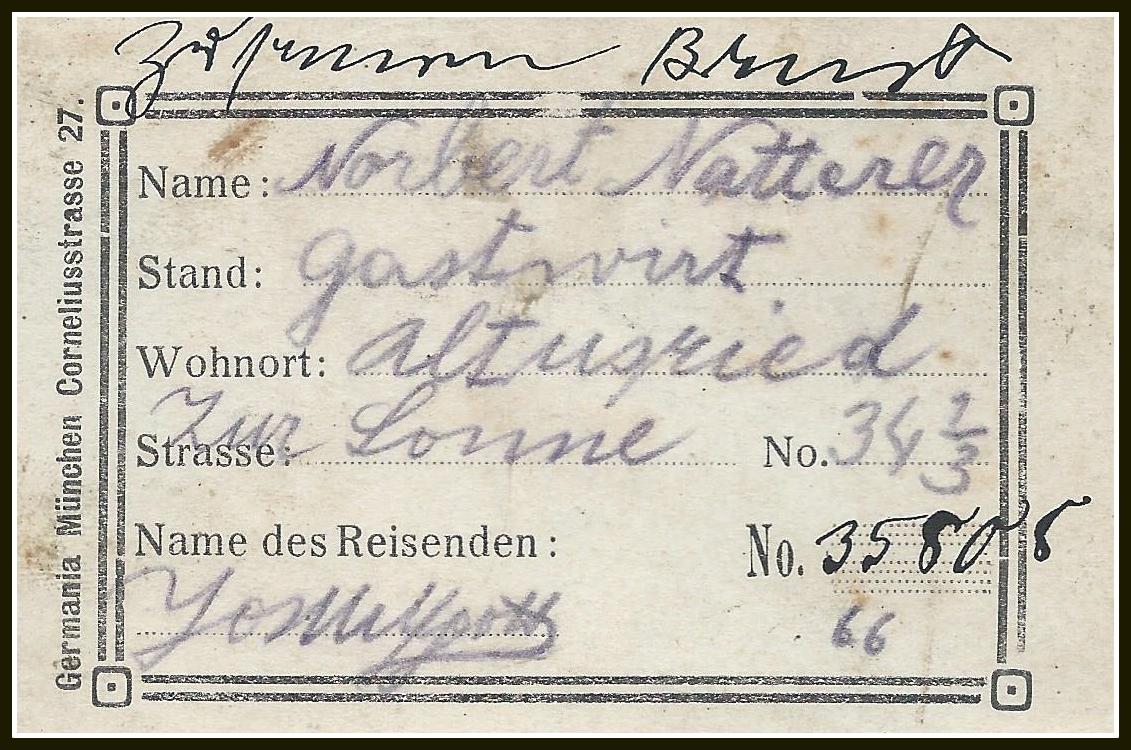 Zusammen
Germania München Corneliusstrasse 27.
Name: Norbert Natterer
Stand: Gastwirt
Wohnort: Altusried
Strasse: Zur Sonne No. 34 1/3
Name des Reisenden: No. 35808
66